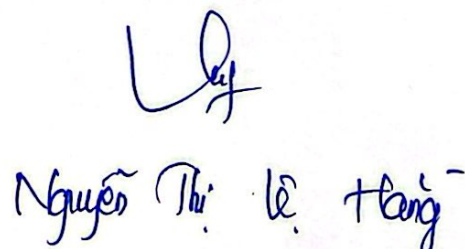 Nguyễn Thị Lệ Hằng